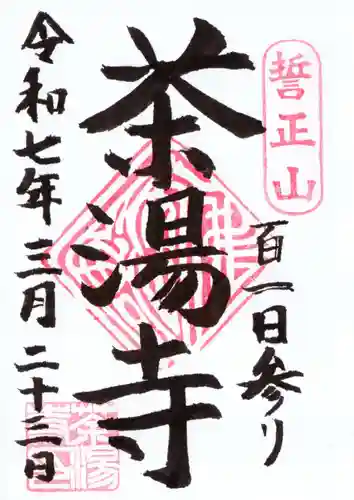 誓正山
百一日参り
茶湯寺
令和七年三月二十二日
茶湯寺印